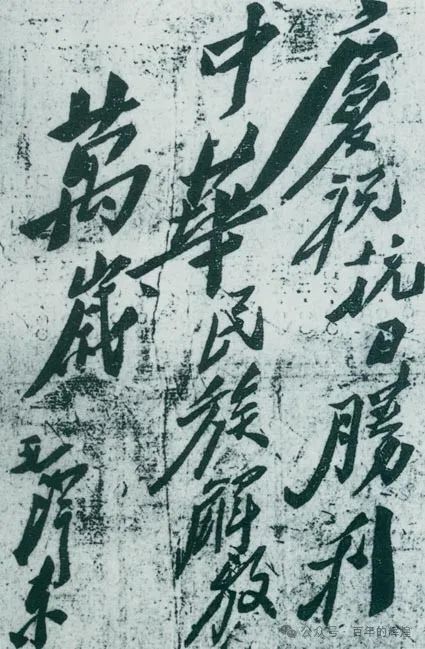 慶祝抗日勝利
中華民族解放
萬歲
毛澤东
公众号 · 百年的辉煌